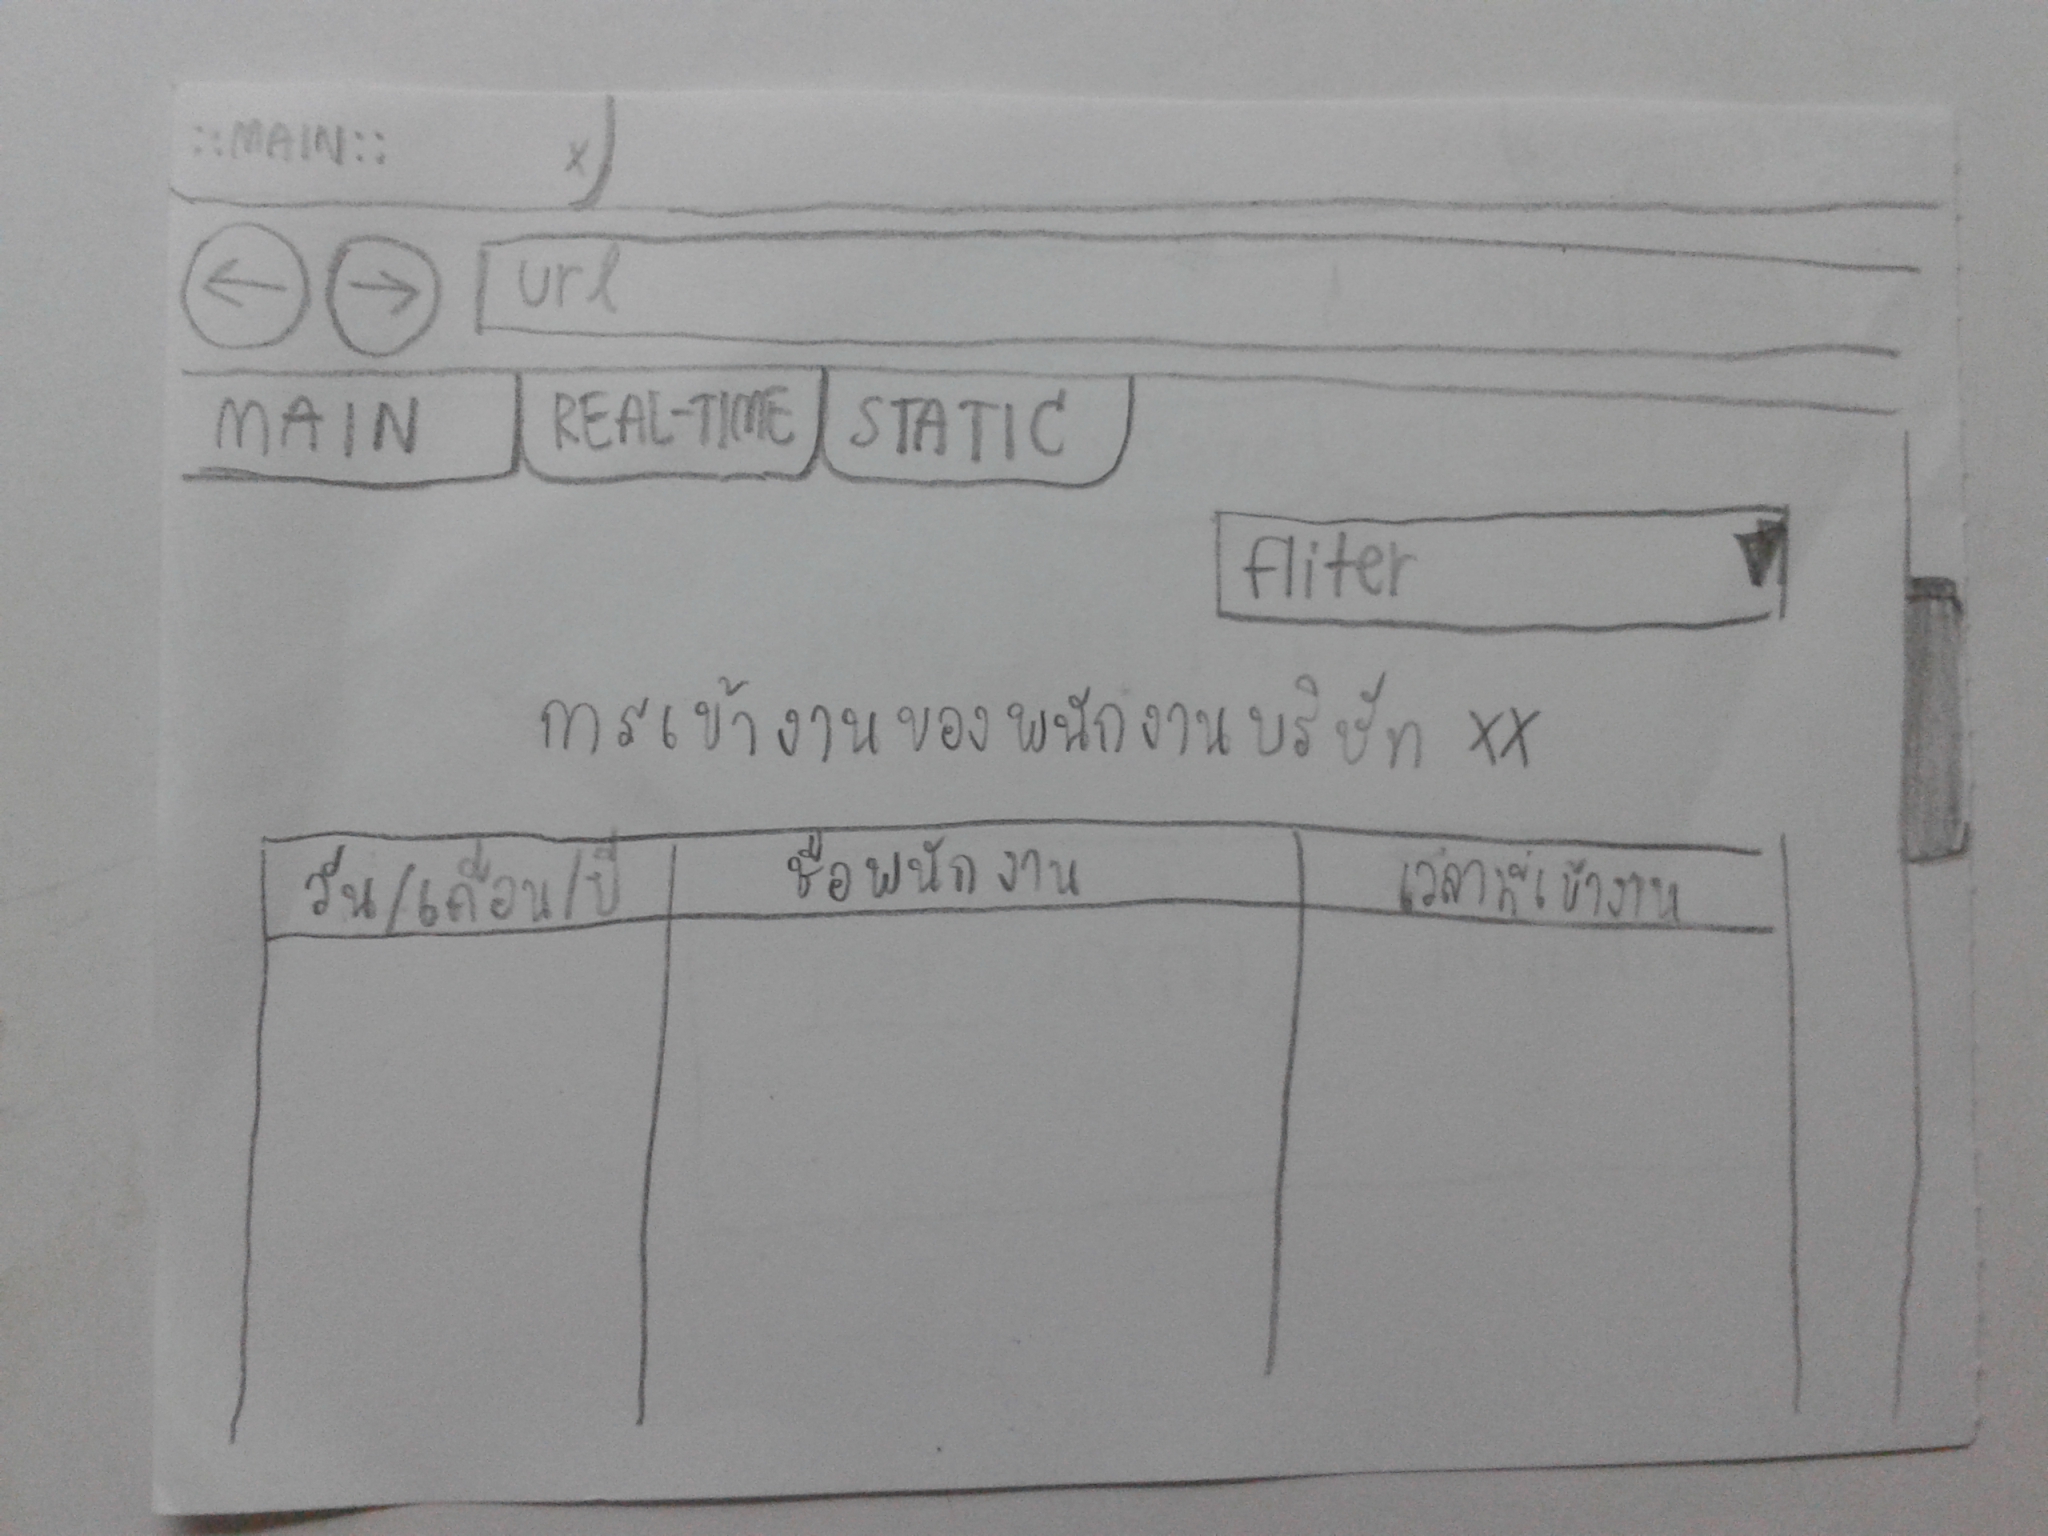 ::MAIN:: x
url
MAIN REAL-TIME STATIC
fliter
การเข้างานของพนักงานบริษัท XX
วัน/เดือน/ปี ชื่อพนักงาน เวลาที่เข้างาน